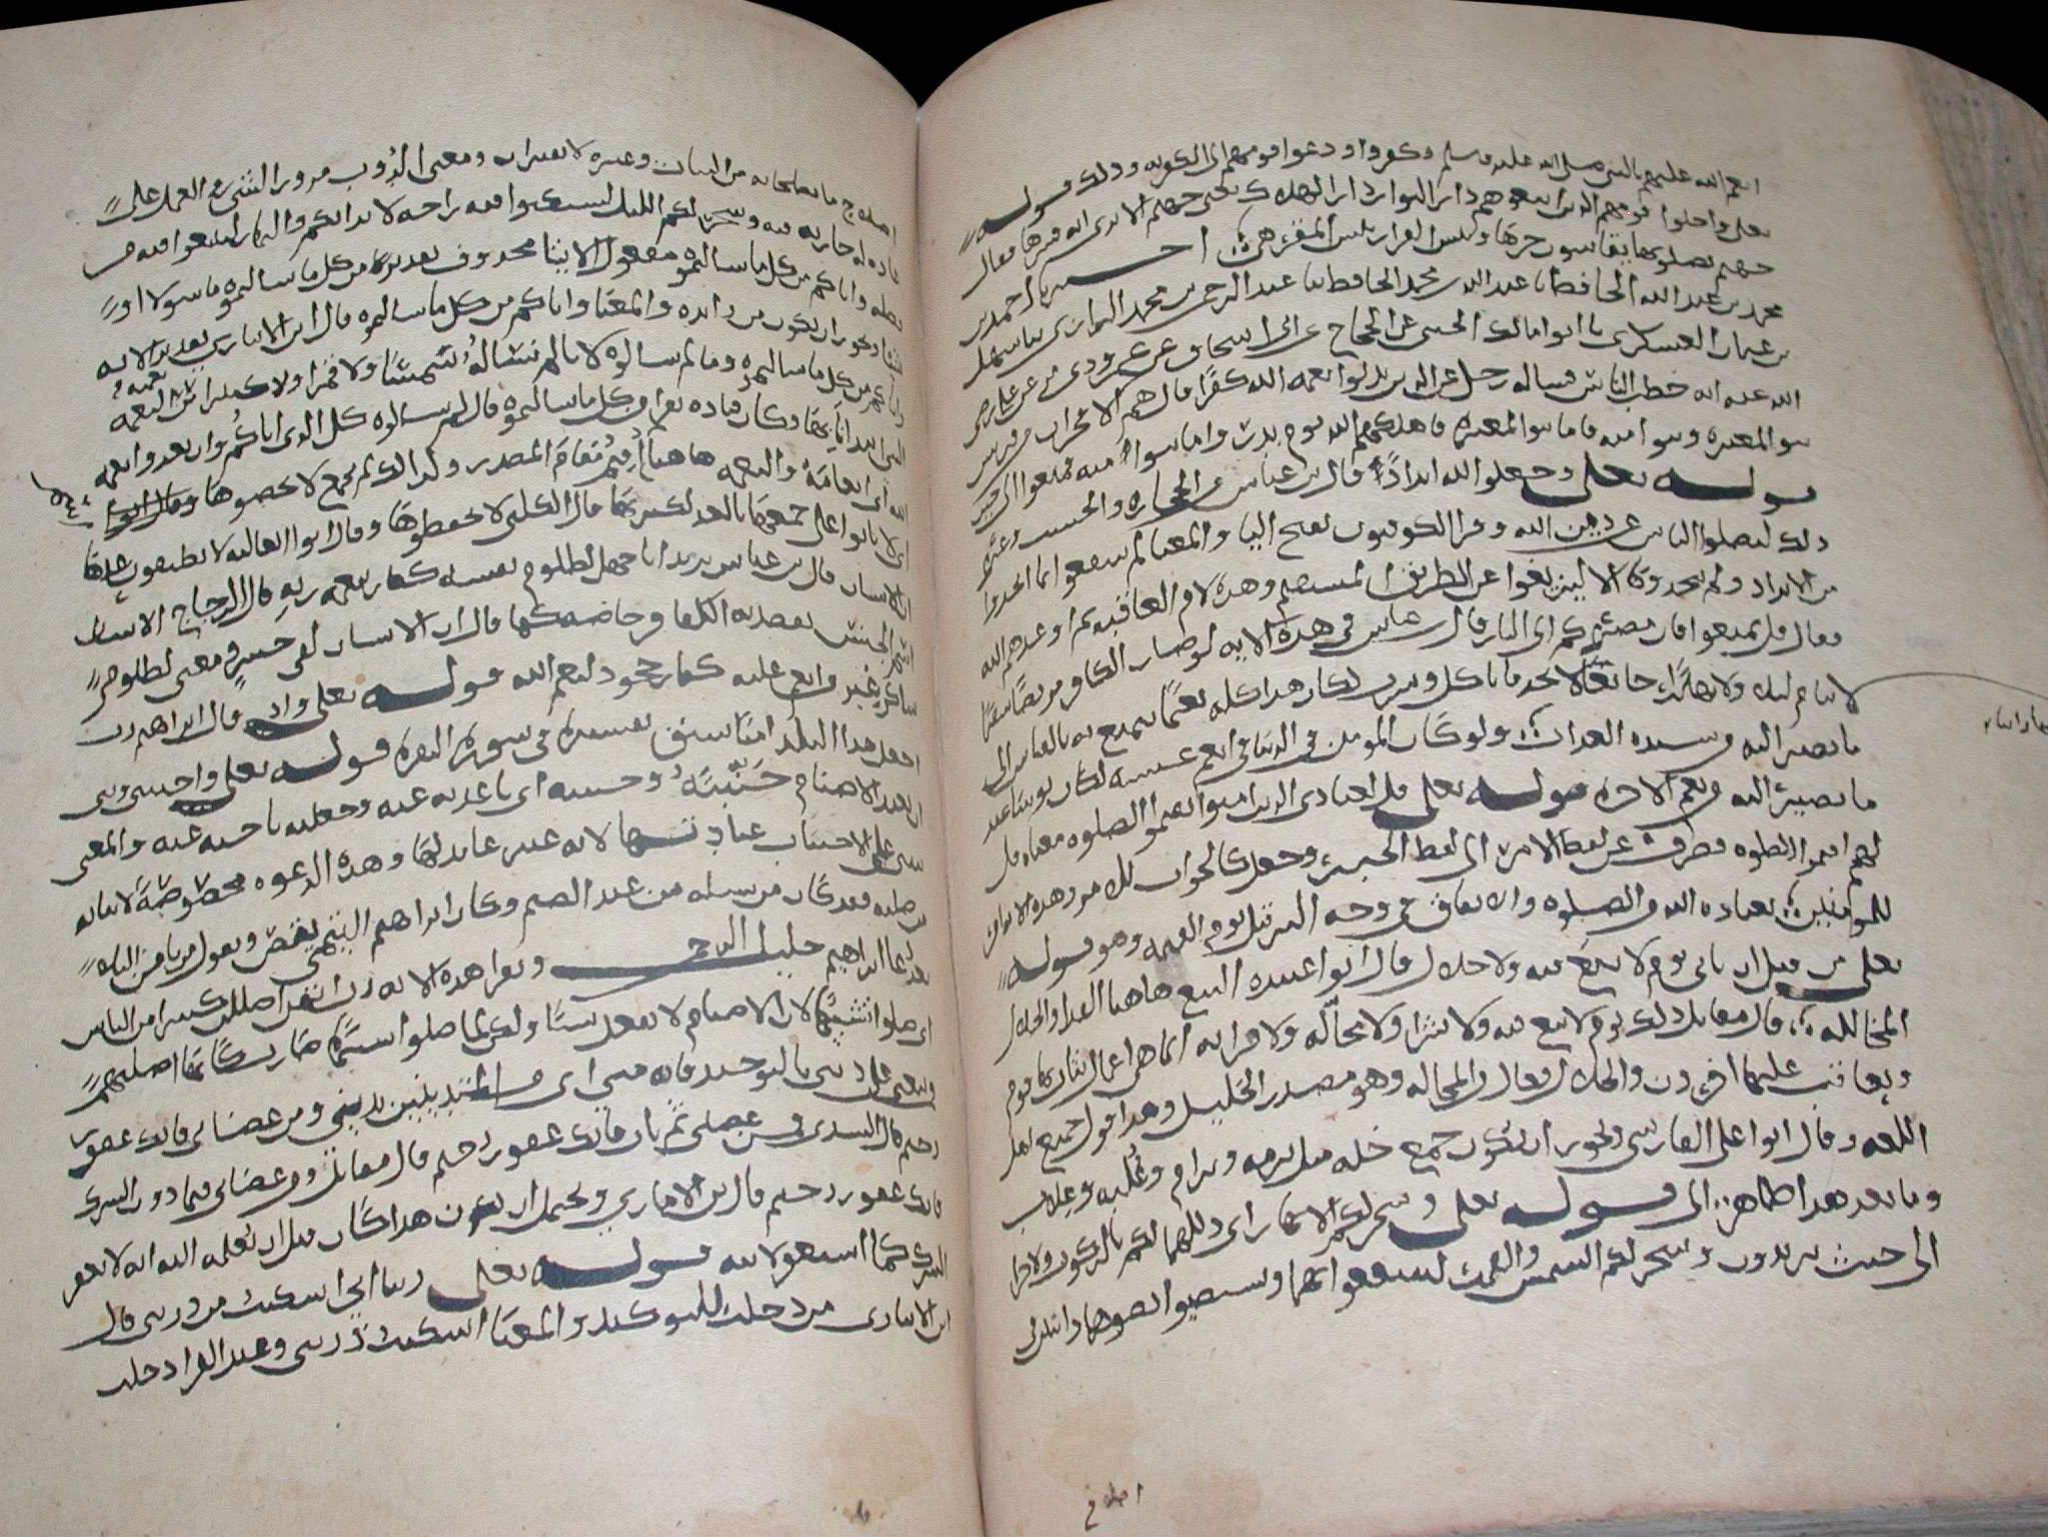 انعم الله عليهم بالنبي صلى الله عليه وسلم وكفروا ودعوا قومهم الى الكفر به وذلك قوله
تعالى واحلوا قومهم الذين اتبعوهم دار البوار دار الهلاك يعني جهنم الا ترى انه فسرها فقال
جهنم يصلونها يقاسون حرها وبئس القرار بئس المقر هي اخبرنا احمد بن
محمد بن عبد الله الحافظ انا عبد الله بن محمد الحافظ نا عبد الرحمن بن محمد الرازي نا سهل
بن عثمان العسكري نا ابو مالك الجنبي عن الحجاج عن ابي اسحاق عن عمرو ذي مر عن علي رضي
الله عنه انه خطب الناس فساله رجل عن الذين بدلوا نعمة الله كفرا قال هم الافجران من قريش
بنو المغيرة وبنو امية فاما بنو المغيرة فاهلكهم الله يوم بدر واما بنو امية فمتعوا الى حين
قوله تعالى وجعلوا لله اندادا قال ابن عباس الحجارة والخشب وغيره
ذلك ليضلوا الناس عن دين الله وقرا الكوفيون بفتح اليا والمعنى لم ينتفعوا بما اتخذوا
من الانداد ولم يتخذوها الا ليزيغوا عن الطريق المستقيم وهذه لام العاقبة ثم اوعدهم الله
فقال قل تمتعوا فان مصيركم الى النار قال ابن عباس في هذه الاية لو صار الكافر مريضا سقيما
لا ينام ليلا ولا نهارا جائعا لا يجد ما ياكل ويشرب لكان هذا كله نعيما يتمتع به بالقياس الى
ما يصير اليه من شدة العذاب ولو كان المومن في الدنيا في انعم عيشة لكان بوسا عند
ما يصير اليه من نعيم الاخرة قوله تعالى قل لعبادي الذين امنوا يقيموا الصلوة معناه قل
لهم اقيموا الصلوة فصرف عن لفظ الامر الى لفظ الخبر وجعل كالجواب للامر وهذه الاية امر
للمومنين بعبادة الله في الصلوة والانفاق في وجه البر قبل يوم القيمة وهو قوله
تعالى من قبل ان ياتي يوم لا بيع فيه ولا خلال قال ابو عبيدة البيع هاهنا الفدا والخلال
المخالله قال مقاتل ذلك يوم لا بيع فيه ولا شرا ولا مخالة ولا قرابة انما هي اعمال يثاب بها قوم
ويعاقب عليها اخرون والخلال فعال والمخالة وهو مصدر الخليل وهذا قول جميع اهل
اللغة وقال ابو علي الفارسي ويجوز ان يكون جمع خله مثل برمه وبرام وعلبه وعلاب
وما بعد هذا ظاهر الى قوله تعالى وسخر لكم الانهار اي ذللها لكم بالركوب والاجرا
الى حيث تريدون وسخر لكم الشمس والقمر لتنتفعوا بهما وتستضيوا بضوهما دائبين
اصلاح
اصلاح ما يصلحانه من النبات وغيره لا يفتران ومعنى الدوب مرور الشيء في العمل على
عادة جارية فيه وسخر لكم الليل لتسكنوا فيه راحة لابدانكم والنهار لتبتغوا فيه من
فضله واتاكم من كل ما سالتموه مفعول الايتا محذوف تقديره من كل ما سالتموه ما سولا او
شيا ويجوز ان يكون من زائدة والمعنا واتاكم من كل ما سالتموه قال ابن الانباري تقدير الاية
واتاكم من كل ما سالتموه وما لم تسالوه لانا لم نساله شمسا ولا قمرا ولا كثيرا من نعمه
التي ابتداناا بها وكان قتادة يقرا من كل ما سالتموه قال لم تسالوه كل الذي اتاكم وان تعدوا نعمة
الله اي انعامه والنعمة هاهنا اقيم مقام المصدر ولذلك لم تجمع لا تحصوها
اي لا تاتوا على جميعها بالعد لكثرتها قال الكلبي لا تحفظوها وقال ابو العالية لا تطيقون عدها
ان الانسان قال ابن عباس يريد ابا جهل لظلوم نفسه كفار بنعمة ربه قال الزجاج الانسان
اسم الجنس يقصد به الكفار خاصة كما قال ان الانسان لفي خسر ومعنى لظلوم
شاكر غير من انعم عليه كفار جحود لنعم الله قوله تعالى واذ قال ابراهيم رب
اجعل هذا البلد امنا سبق تفسيره في سورة البقرة قوله تعالى واجنبني وبني
ان نعبد الاصنام جنبته وجنبته اي باعدته عنه وجعلته ناحية عنه والمعنى
ثبتني على اجتناب عبادتها لانه غير عابد لها وهذه الدعوة مخصوصة لابنائه
من صلبه فقد كان من نسله من عبد الصنم وكان ابراهيم التيمي يقص ويقول من يامن البلاء
بعد دعا ابراهيم خليل الرحمن ويقرا هذه الاية رب انهن اضللن كثيرا من الناس
اي ضلوا بسببها لان الاصنام لا تفعل شيا ولكن لما ضلوا بسببها صار كانها اضلتهم
فمن تبعني على ديني بالتوحيد فانه مني اي من المتدينين بديني ومن عصاني فانك غفور
رحيم قال السدي ومن عصاني ثم تاب فانك غفور رحيم قال مقاتل ومن عصاني فيما دون الشرك
فانك غفور رحيم قال ابن الانباري ويحتمل ان يكون هذا كان قبل ان يعلمه الله انه لا يغفر
الشرك كما استغفر لابيه قوله تعالى ربنا اني اسكنت من ذريتي قال
ابن الانباري من دخلت للتوكيد والمعنا اسكنت ذريتي وعند الفرا دخلت